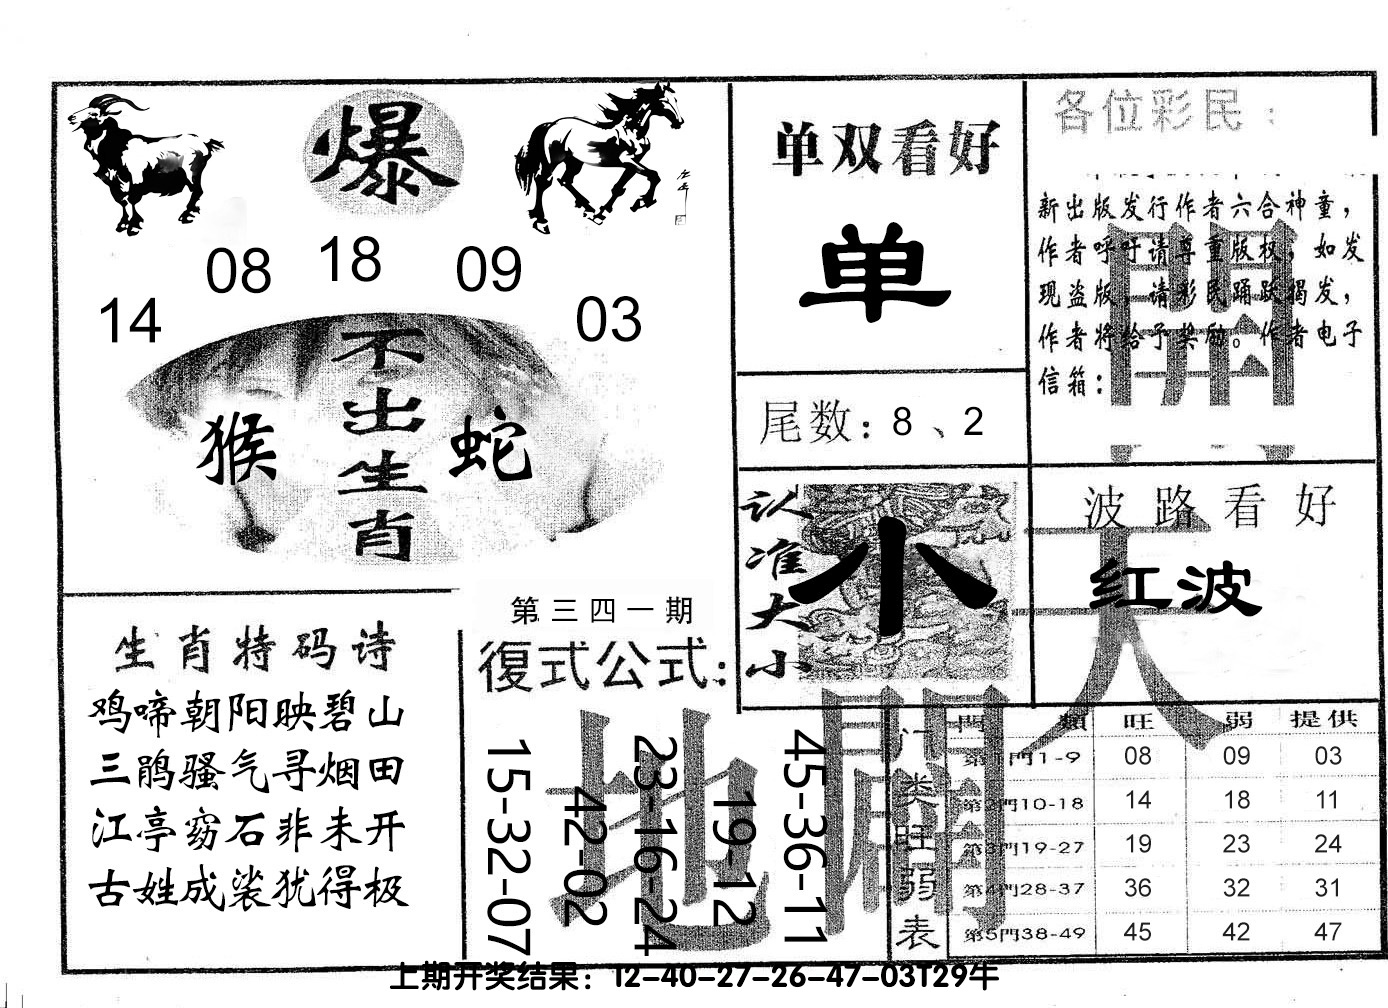 爆
08 18 09
14 03
不出生肖
猴 蛇
单双看好
单
尾数：8、2
认准大小
小
各位彩民：
新出版发行作者六合神童，
作者呼吁请尊重版权，如发
现盗版，请彩民踊跃揭发，
作者将给予奖励。作者电子
信箱：
開
波路看好
红波
天
生肖特码诗
鸡啼朝阳映碧山
三鹃骚气寻烟田
江亭窈石非未开
古姓成裟犹得极
第三四一期
復式公式：
15-32-07
42-02
23-16-24
19-12
45-36-11
地
門類 旺 弱 提供
第1門1-9 08 09 03
第2門10-18 14 18 11
第3門19-27 19 23 24
第4門28-37 36 32 31
第5門38-49 45 42 47
门类旺弱表
上期开奖结果：12-40-27-26-47-03T29牛